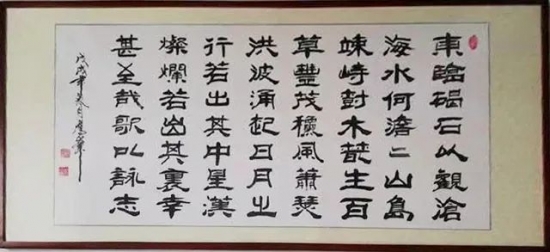 東臨碣石以觀滄
海水何澹二山島
竦峙尌木叢生百
草豐茂穐風蕭瑟
洪波涌起日月之
行若出其中星漢
燦爛若出其裏幸
甚至哉歌以詠志
戊戌年春月